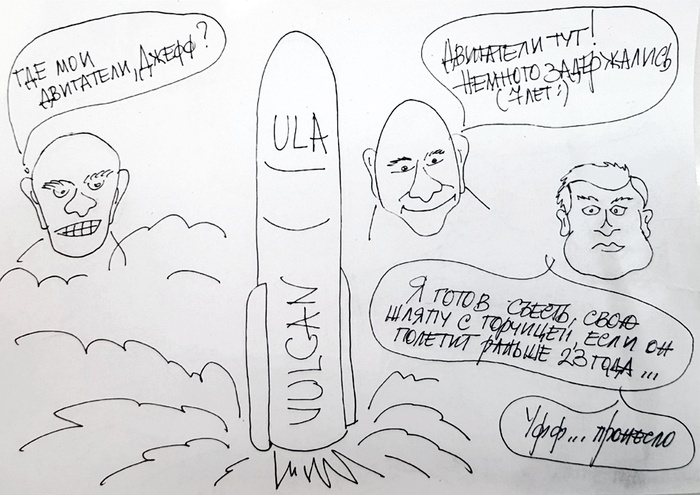 ГДЕ МОИ
ДВИГАТЕЛИ, ДЖЕФФ?
ULA
VULCAN
ДВИГАТЕЛИ ТУТ!
НЕМНОГО ЗАДЕРЖАЛИСЬ
(7 ЛЕТ :)
Я ГОТОВ СЪЕСТЬ, СВОЮ
ШЛЯПУ С ГОРЧИЦЕЙ, ЕСЛИ ОН
ПОЛЕТИТ РАНЬШЕ 23 ГОДА...
Уфф... пронесло